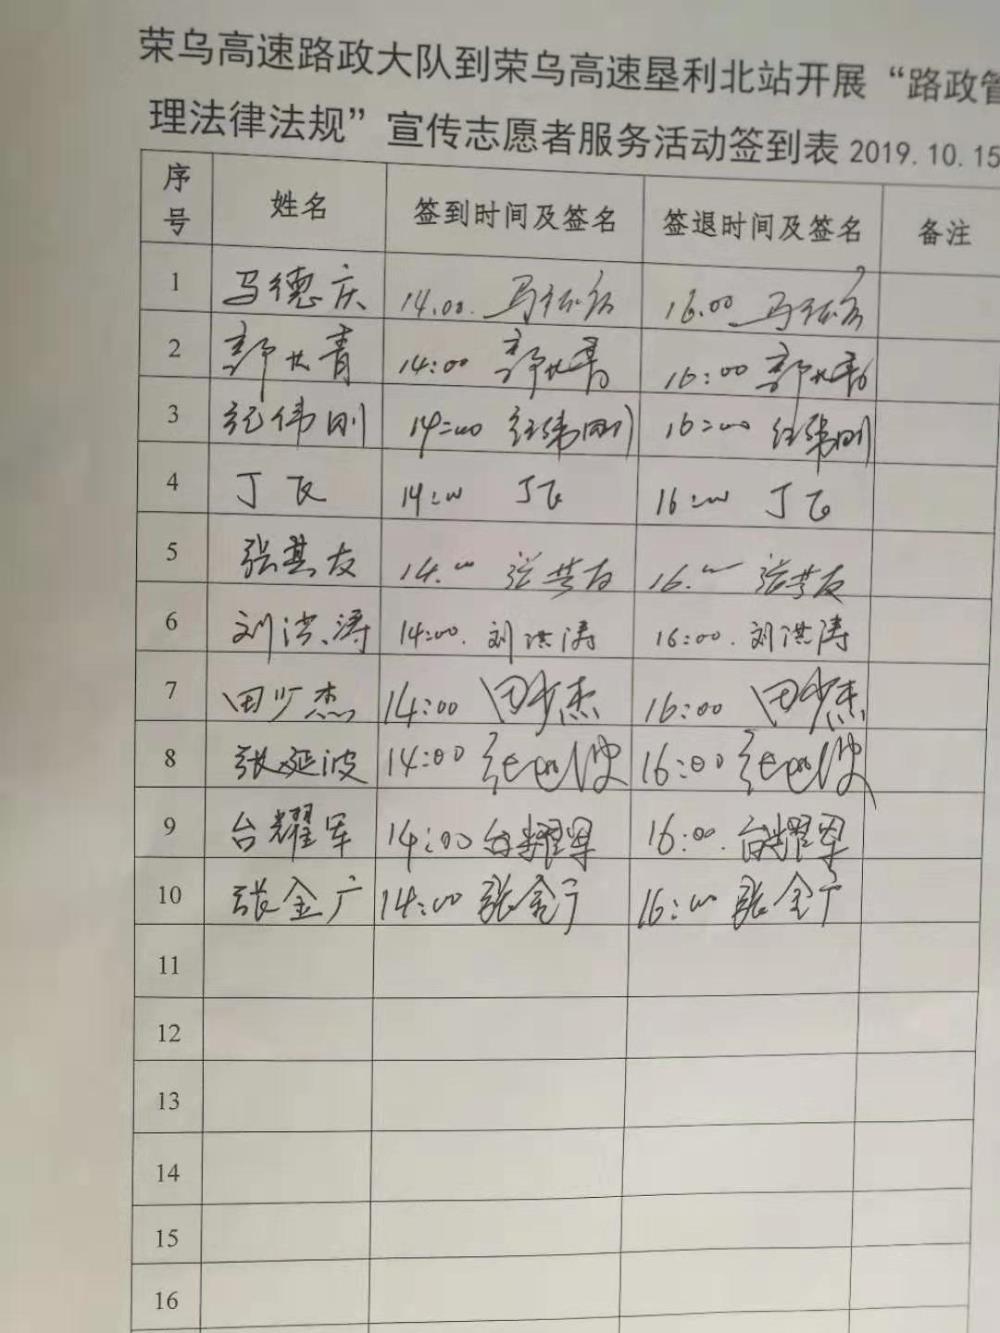 荣乌高速路政大队到荣乌高速垦利北站开展“路政管
理法律法规”宣传志愿者服务活动签到表 2019.10.15
序号 姓名 签到时间及签名 签退时间及签名 备注
1 马德庆 14.00. 马德庆 16.00 马德庆
2 郭世青 14:00 郭世青 16:00 郭世青
3 纪伟刚 14:00 纪伟刚 16:00 纪伟刚
4 丁飞 14:00 丁飞 16:00 丁飞
5 张其友 14.00 张其友 16.00 张其友
6 刘洪涛 14:00. 刘洪涛 16:00. 刘洪涛
7 田少杰 14:00 田少杰 16:00 田少杰
8 张延波 14:00 张延波 16:00 张延波
9 台耀军 14:00 台耀军 16:00. 台耀军
10 张金广 14:00 张金广 16:00 张金广
11
12
13
14
15
16